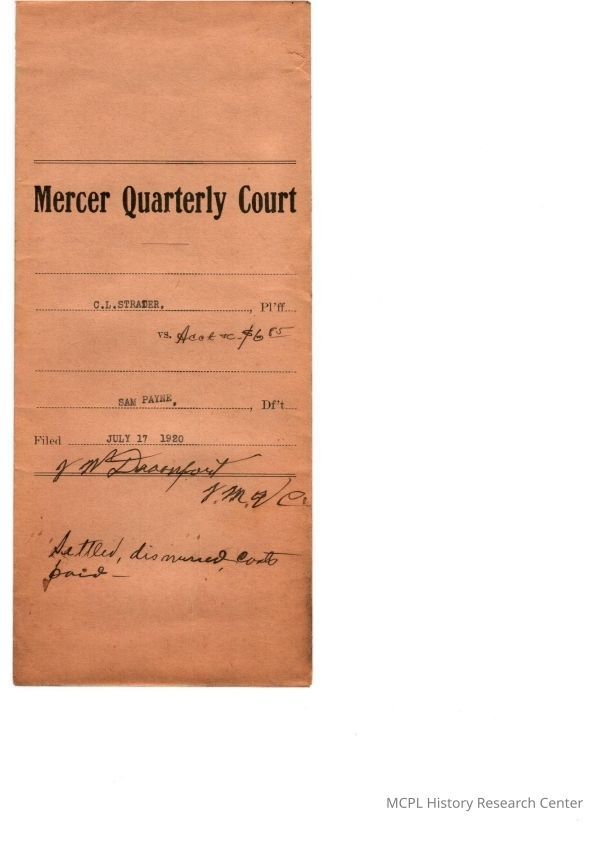 Mercer Quarterly Court
C.L.STRADER, , Pl'ff
vs. Acct $6 85
SAM PAYNE, , Df't
Filed JULY 17 1920
J W Davenport
Settled, dismissed, costs
paid —
MCPL History Research Center